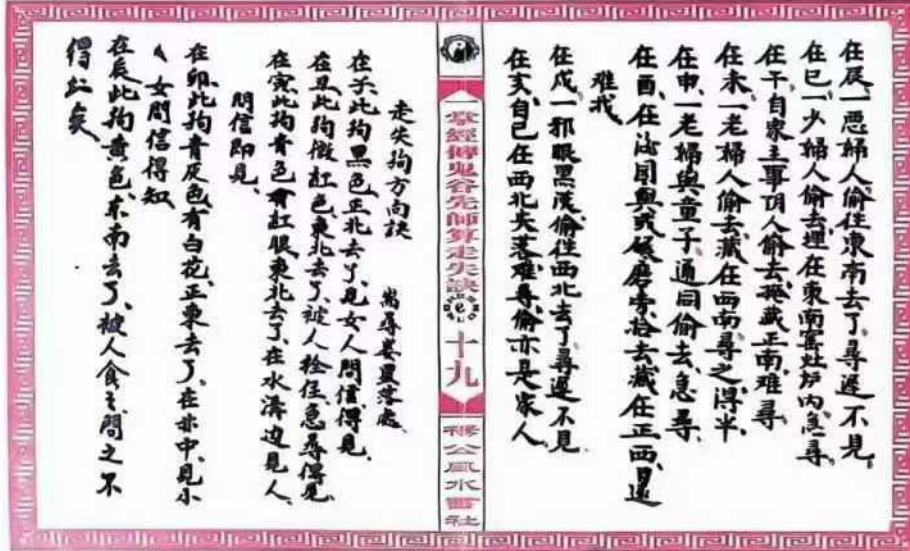 在辰、一惡婦人、偷往東南去了、尋遲不見、
在巳一少婦人偷去埋在東南窑灶炉内、急尋、
在午、自家主事阴人偷去掩藏正南难尋
在未、一老婦人偷去藏在西南尋之得半、
在申、一老婦與童子、通同偷去、急尋、
在酉、在 與或碾磨 拾去藏在正西、還
难找、
在戍一邪眼黑漢偷往西北去了尋遲不見、
在亥、自己在西北失落难尋、偷亦是家人、
一掌經傳鬼谷先師算走失訣
十九
禄公風水書社
走失狗方向訣 尋婁星落處、
在子、此狗黑色、正北去了、見女人問信得見、
在丑、此狗微紅色、東北去了、被人栓住、急尋得見
在寅、此狗青色有紅眼東北去了、在水溝边見人、
問信即見、
在卯、此狗青灰色、有白花、正東去了、在 中、見小
女問信得知
在辰、此狗黄色、东南去了、被人食之、問之不
得 矣、